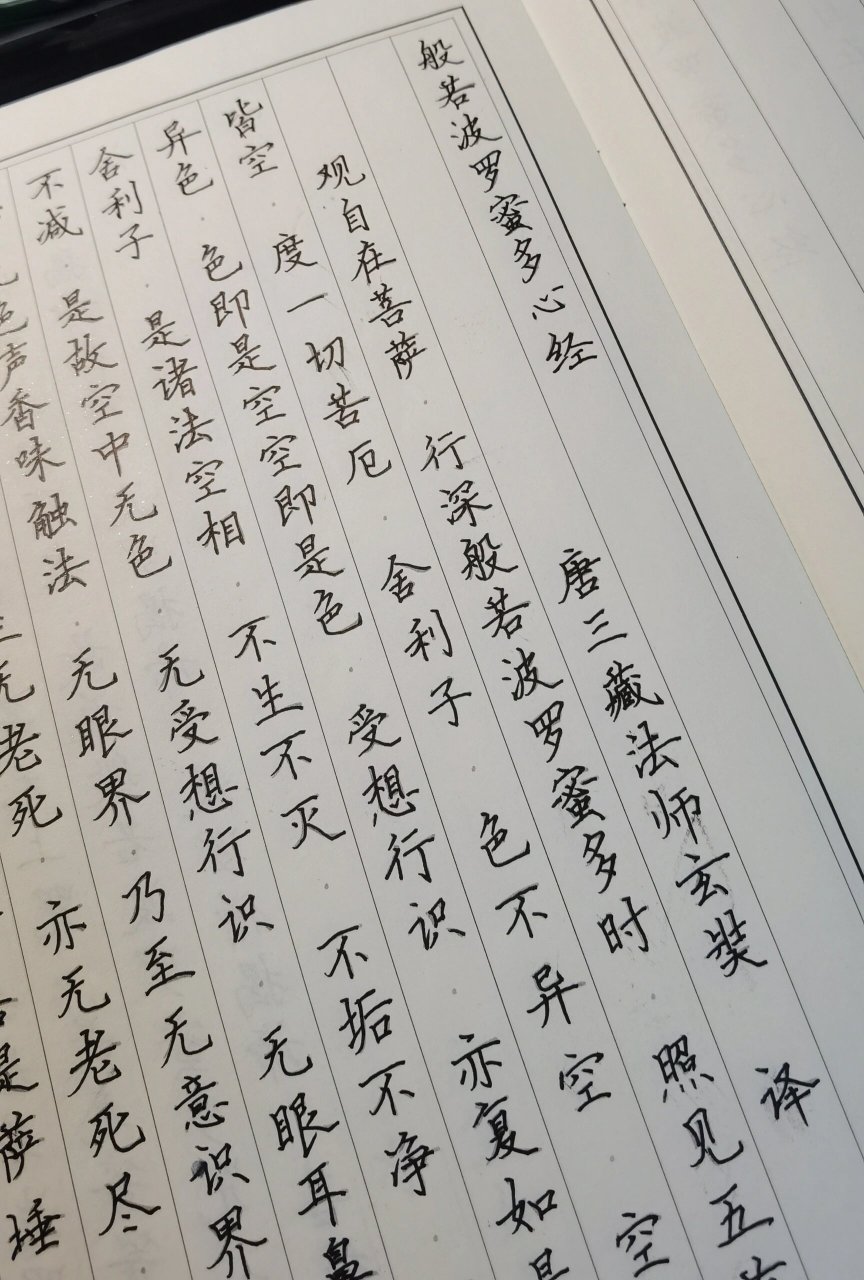 般若波罗蜜多心经 唐三藏法师玄奘 译
观自在菩萨 行深般若波罗蜜多时 照见五
皆空 度一切苦厄 舍利子 色不异空 空
异色 色即是空空即是色 受想行识 亦复如是
舍利子 是诸法空相 不生不灭 不垢不净
不减 是故空中无色 无受想行识 无眼耳鼻
色声香味触法 无眼界 乃至无意识界
无老死 亦无老死尽
萨埵